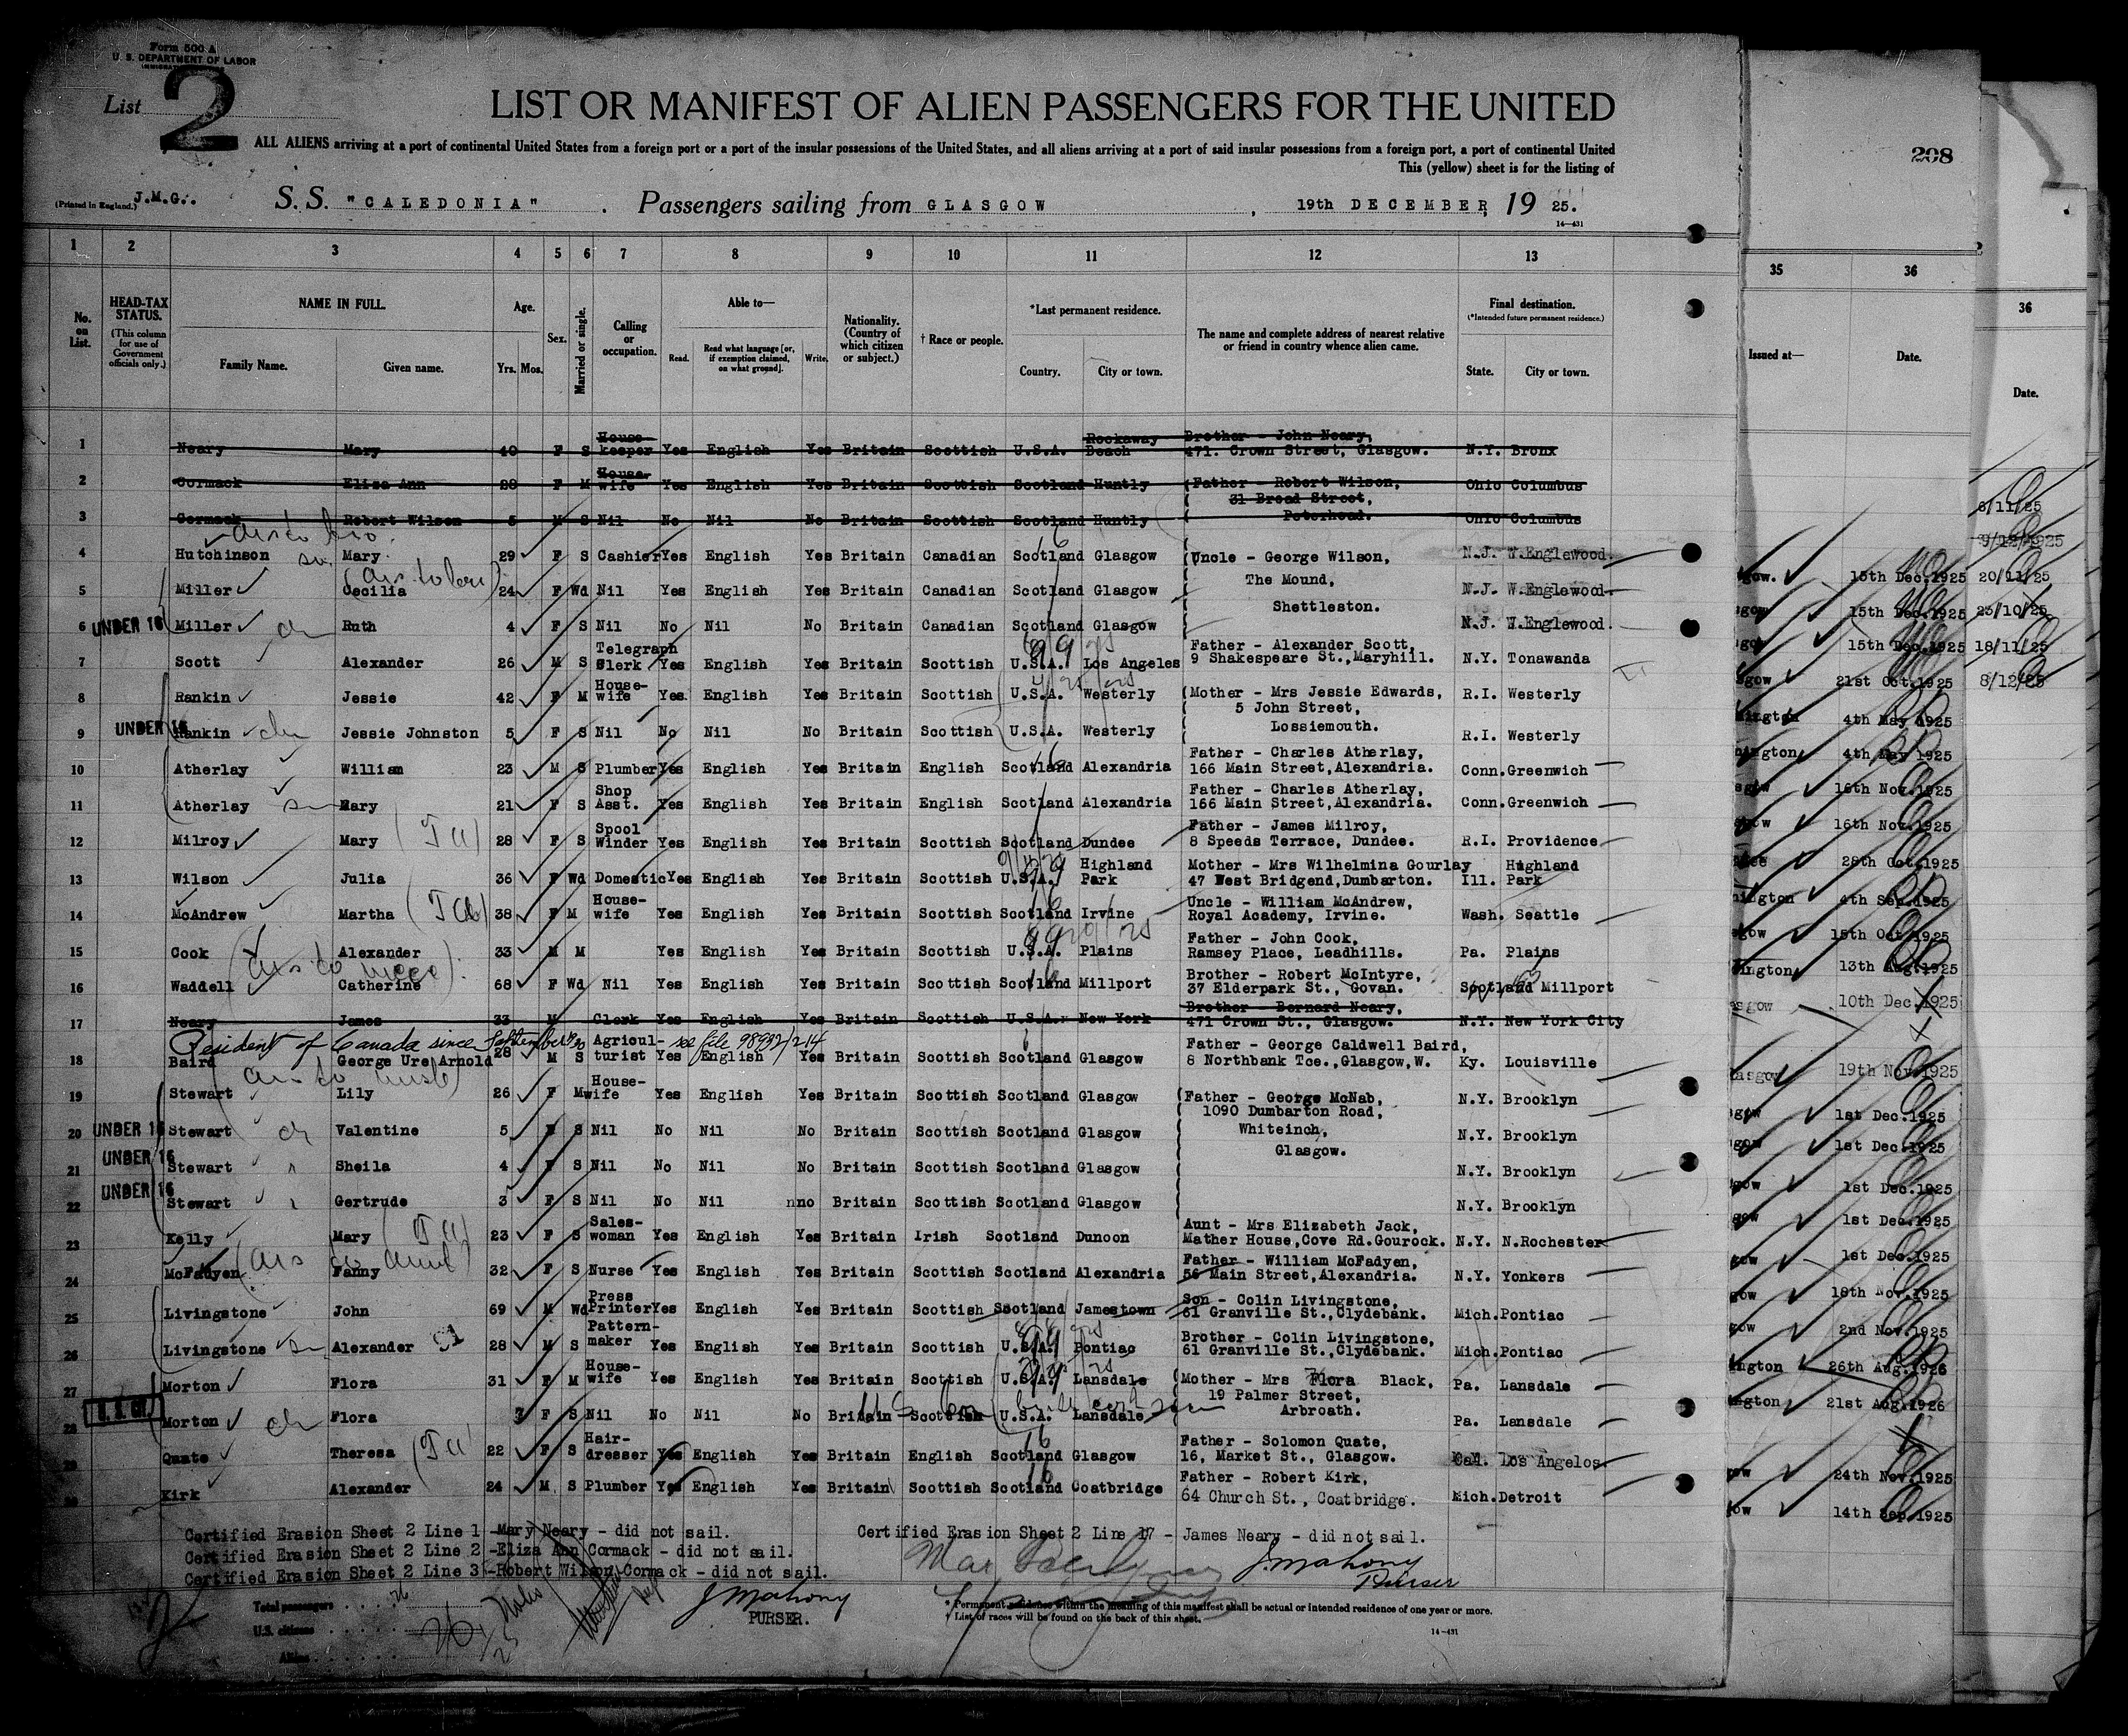 Form 500 A
U. S. DEPARTMENT OF LABOR
List 2
LIST OR MANIFEST OF ALIEN PASSENGERS FOR THE UNITED
ALL ALIENS arriving at a port of continental United States from a foreign port or a port of the insular possessions of the United States, and all aliens arriving at a port of said insular possessions from a foreign port, a port of continental United
This (yellow) sheet is for the listing of
208
(Printed in England.) J.M.G.
S. S. "CALEDONIA" . Passengers sailing from GLASGOW , 19th DECEMBER, 19 25.
14—431
1 2 3 4 5 6 7 8 9 10 11 12 13 35 36
No. on List.
HEAD-TAX STATUS. (This column for use of Government officials only.)
NAME IN FULL. Family Name. Given name.
Age. Yrs. Mos.
Sex.
Married or single.
Calling or occupation.
Able to— Read. Read what language [or, if exemption claimed, on what ground]. Write.
Nationality. (Country of which citizen or subject.)
† Race or people.
*Last permanent residence. Country. City or town.
The name and complete address of nearest relative or friend in country whence alien came.
Final destination. (*Intended future permanent residence.) State. City or town.
Issued at— Date.
36 Date.
1 Neary Mary 40 F S House-keeper Yes English Yes Britain Scottish U.S.A. Rockaway Beach Brother - John Neary, 471. Crown Street, Glasgow. N.Y. Bronx
2 Cormack Eliza Ann 28 F M House-wife Yes English Yes Britain Scottish Scotland Huntly Father - Robert Wilson, 31 Broad Street, Peterhead. Ohio Columbus
3 Cormack Robert Wilson 5 M S Nil No Nil No Britain Scottish Scotland Huntly Ohio Columbus
4 Hutchinson Mary 29 F S Cashier Yes English Yes Britain Canadian Scotland Glasgow Uncle - George Wilson, The Mound, Shettleston. N.J. W.Englewood.
5 Miller Cecilia 24 F Wd Nil Yes English Yes Britain Canadian Scotland Glasgow N.J. W.Englewood
6 UNDER 16 Miller Ruth 4 F S Nil No Nil No Britain Canadian Scotland Glasgow N.J. W.Englewood.
7 Scott Alexander 26 M S Telegraph Clerk Yes English Yes Britain Scottish U.S.A. Los Angeles Father - Alexander Scott, 9 Shakespeare St.,Maryhill. N.Y. Tonawanda
8 Rankin Jessie 42 F M House-wife Yes. English Yes Britain Scottish U.S.A. Westerly Mother - Mrs Jessie Edwards, 5 John Street, Lossiemouth. R.I. Westerly
9 UNDER 16 Rankin Jessie Johnston 5 F S Nil No Nil No Britain Scottish U.S.A. Westerly R.I. Westerly
10 Atherlay William 23 M S Plumber Yes English Yes Britain English Scotland Alexandria Father - Charles Atherlay, 166 Main Street,Alexandria. Conn.Greenwich
11 Atherlay Mary 21 F S Shop Asst. Yes English Yes Britain English Scotland Alexandria Father - Charles Atherlay, 166 Main Street,Alexandria. Conn.Greenwich
12 Milroy Mary 28 F S Spool Winder Yes English Yes Britain Scottish Scotland Dundee Father - James Milroy, 8 Speeds Terrace, Dundee. R.I. Providence
13 Wilson Julia 36 F Wd Domestic Yes English Yes Britain Scottish U.S.A. Highland Park Mother - Mrs Wilhelmina Gourlay 47 West Bridgend,Dumbarton. Ill. Highland Park
14 McAndrew Martha 38 F M House-wife Yes English Yes Britain Scottish Scotland Irvine Uncle - William McAndrew, Royal Academy, Irvine. Wash. Seattle
15 Cook Alexander 33 M M Yes English Yes Britain Scottish U.S.A. Plains Father - John Cook, Ramsey Place, Leadhills. Pa. Plains
16 Waddell Catherine 68 F Wd Nil Yes English Yes Britain Scottish Scotland Millport Brother - Robert McIntyre, 37 Elderpark St., Govan. Scotland Millport
17 Neary James 33 M Clerk Yes English Yes Britain Scottish U.S.A. New York Brother - Bernard Neary, 471 Crown St., Glasgow. N.Y. New York City
Resident of Canada since
18 Baird George Ure Arnold 28 M S Agricul-turist Yes English Yes Britain Scottish Scotland Glasgow Father - George Caldwell Baird, 8 Northbank Tce.,Glasgow,W. Ky. Louisville
19 Stewart Lily 26 F M House-wife Yes English Yes Britain Scottish Scotland Glasgow Father - George McNab, 1090 Dumbarton Road, Whiteinch, Glasgow. N.Y. Brooklyn
20 UNDER 16 Stewart Valentine 5 S Nil No Nil No Britain Scottish Scotland Glasgow N.Y. Brooklyn
21 UNDER 16 Stewart Sheila 4 F S Nil No Nil No Britain Scottish Scotland Glasgow N.Y. Brooklyn
22 UNDER 16 Stewart Gertrude 3 F S Nil No Nil nno Britain Scottish Scotland Glasgow N.Y. Brooklyn
23 Kelly Mary 23 F S Sales-woman Yes English Yes Britain Irish Scotland Dunoon Aunt - Mrs Elizabeth Jack, Mather House,Cove Rd.Gourock. N.Y. N.Rochester
24 McFadyen Fanny 32 F S Nurse Yes English Yes Britain Scottish Scotland Alexandria Father - William McFadyen, 56 Main Street,Alexandria. N.Y. Yonkers
25 Livingstone John 69 M Wd Press Printer Yes English Yes Britain Scottish Scotland Jamestown Son - Colin Livingstone, 61 Granville St.,Clydebank. Mich.Pontiac
26 Livingstone Alexander 28 M S Pattern-maker Yes English Yes Britain Scottish U.S.A. Pontiac Brother - Colin Livingstone, 61 Granville St.,Clydebank. Mich.Pontiac
27 Morton Flora 31 F M House-wife Yes English Yes Britain Scottish U.S.A. Lansdale Mother - Mrs Flora Black, 19 Palmer Street, Arbroath. Pa. Lansdale
28 Morton Flora 3 F S Nil No Nil No Britain Scottish U.S.A. Lansdale Pa. Lansdale
29 Quate Theresa 22 F S Hair-dresser Yes English Yes Britain English Scotland Glasgow Father - Solomon Quate, 16, Market St., Glasgow. Cal. Los Angelos.
30 Kirk Alexander 24 M S Plumber Yes English Yes Britain Scottish Scotland Coatbridge Father - Robert Kirk, 64 Church St., Coatbridge. Mich.Detroit
6/11/25
9/12/1925
15th Dec.1925 20/11/25
15th Dec.1925 23/10/25
15th Dec.1925 18/11/25
21st Oct.1925 8/12/25
4th May 1925
4th May 1925
16th Nov.1925
16th Nov.1925
28th Oct.1925
4th Sep.1925
15th Oct.1925
13th Aug.1925
10th Dec.1925
19th Nov.1925
1st Dec.1925
1st Dec.1925
1st Dec.1925
1st Dec.1925
1st Dec.1925
18th Nov.1925
2nd Nov.1925
26th Aug.1926
21st Aug.1926
24th Nov.1925
14th Sep.1925
Certified Erasion Sheet 2 Line 1 -Mary Neary - did not sail.
Certified Erasion Sheet 2 Line 2 -Eliza Ann Cormack - did not sail.
Certified Erasion Sheet 2 Line 3 -Robert Wilson Cormack - did not sail.
Certified Erasion Sheet 2 Line 17 - James Neary - did not sail.
J Mahony
Purser
J Mahony
PURSER.
Total passengers 26
U.S. citizens
Aliens
* Permanent residence within the meaning of this manifest shall be actual or intended residence of one year or more.
† List of races will be found on the back of this sheet.
14—431